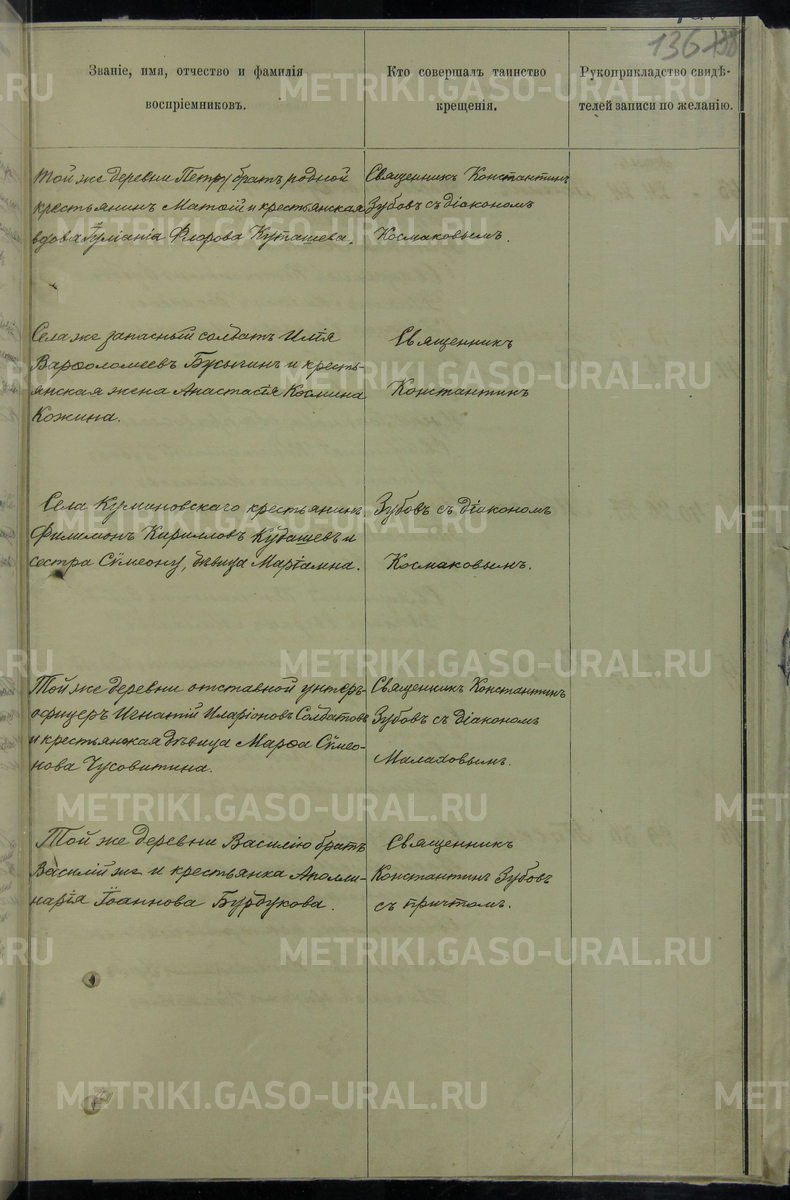 136
Званіе, имя, отчество и фамилія
воспріемниковъ.
Кто совершалъ таинство
крещенія.
Рукоприкладство свидѣ-
телей записи по желанію.
Той же деревни Петру братъ родной
крестьянинъ Матѳій и крестьянская
вдова Іуліанія Флорова Куташева.
Священникъ Константинъ
Зубовъ съ діакономъ
Космаковымъ.
Села же запасный солдатъ Илія
Варѳоломеевъ Бусыгинъ и кресть-
янская жена Анастасія Космина
Кожина.
Священникъ
Константинъ
Села Курмановскаго крестьянинъ
Филимонъ Кирилловъ Кудашевъ и
сестра Сѵмеону, дѣвица Маріамна.
Зубовъ съ діакономъ
Космаковымъ.
Той же деревни отставной унтеръ-
офицеръ Игнатій Иларіоновъ Солдатовъ
и крестьянская дѣвица Марѳа Сѵмео-
нова Чусовитина.
Священникъ Константинъ
Зубовъ съ діакономъ
Малаховымъ.
Той же деревни Василію братъ
Василій же и крестьянка Аполли-
нарія Іоаннова Бурбукова.
Священникъ
Константинъ Зубовъ
съ причтомъ.
METRIKI.GASO-URAL.RU